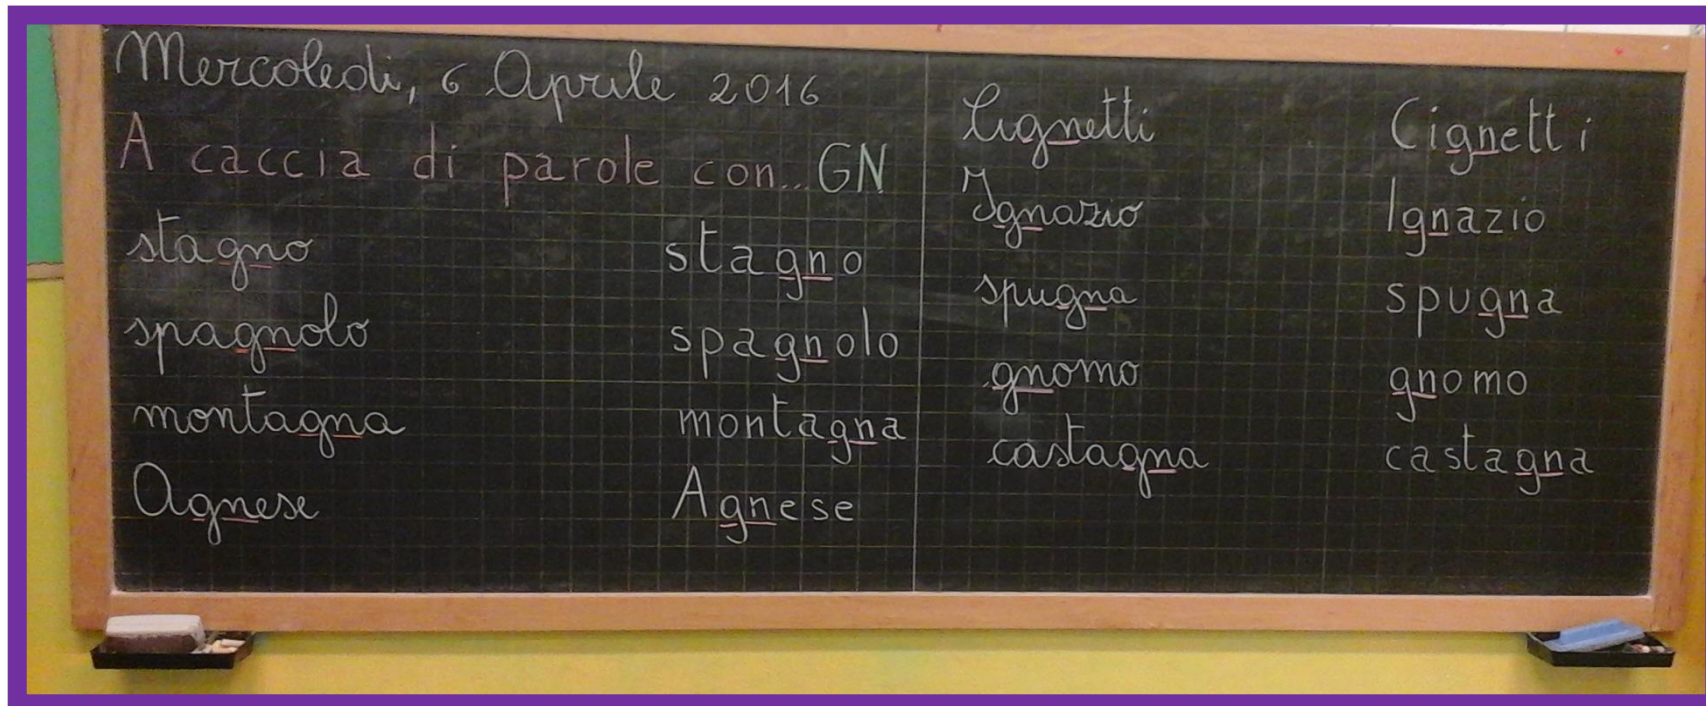 Mercoledì, 6 Aprile 2016
A caccia di parole con... GN
stagno stagno
spagnolo spagnolo
montagna montagna
Agnese Agnese
Cignetti Cignetti
Ignazio Ignazio
spugna spugna
gnomo gnomo
castagna castagna